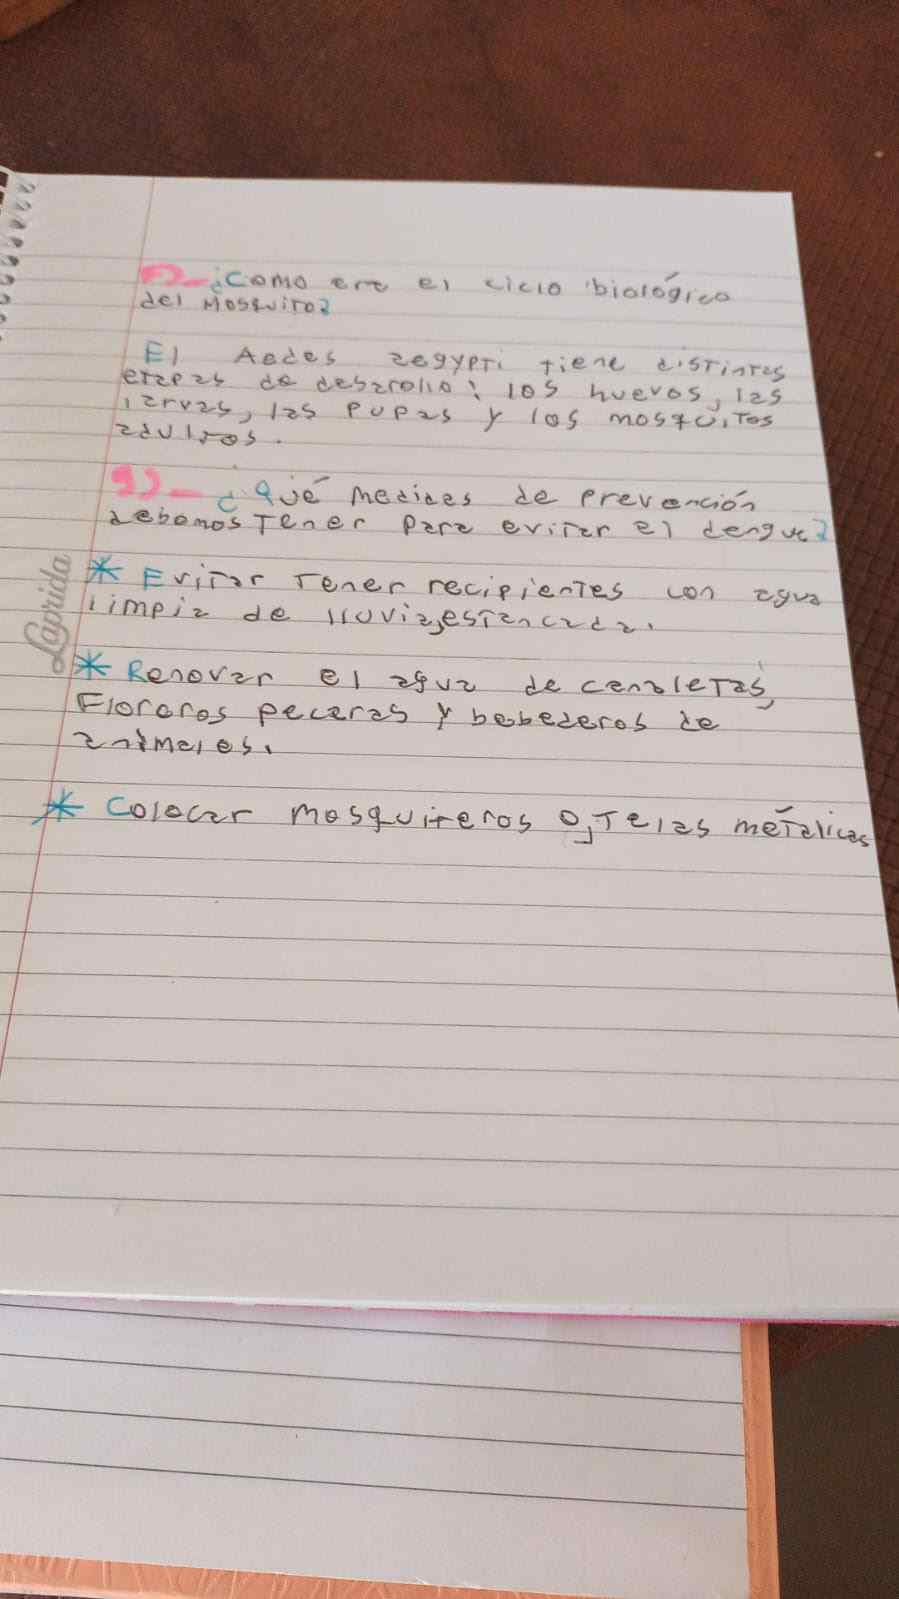 ¿Como era el ciclo biológico
del Mosquito?
El Aedes aegypti tiene distintas
etapas de desarollo: los huevos, las
larvas, las pupas y los mosquitos
adultos.
9)- ¿Qué medidas de prevención
debemos tener para evitar el dengue?
* Evitar tener recipientes con agua
limpia de lluvia, estancada.
* Renovar el agua de canaletas,
Floreros peceras y bebederos de
animales.
* Colocar mosquiteros o, telas metálicas
Laprida